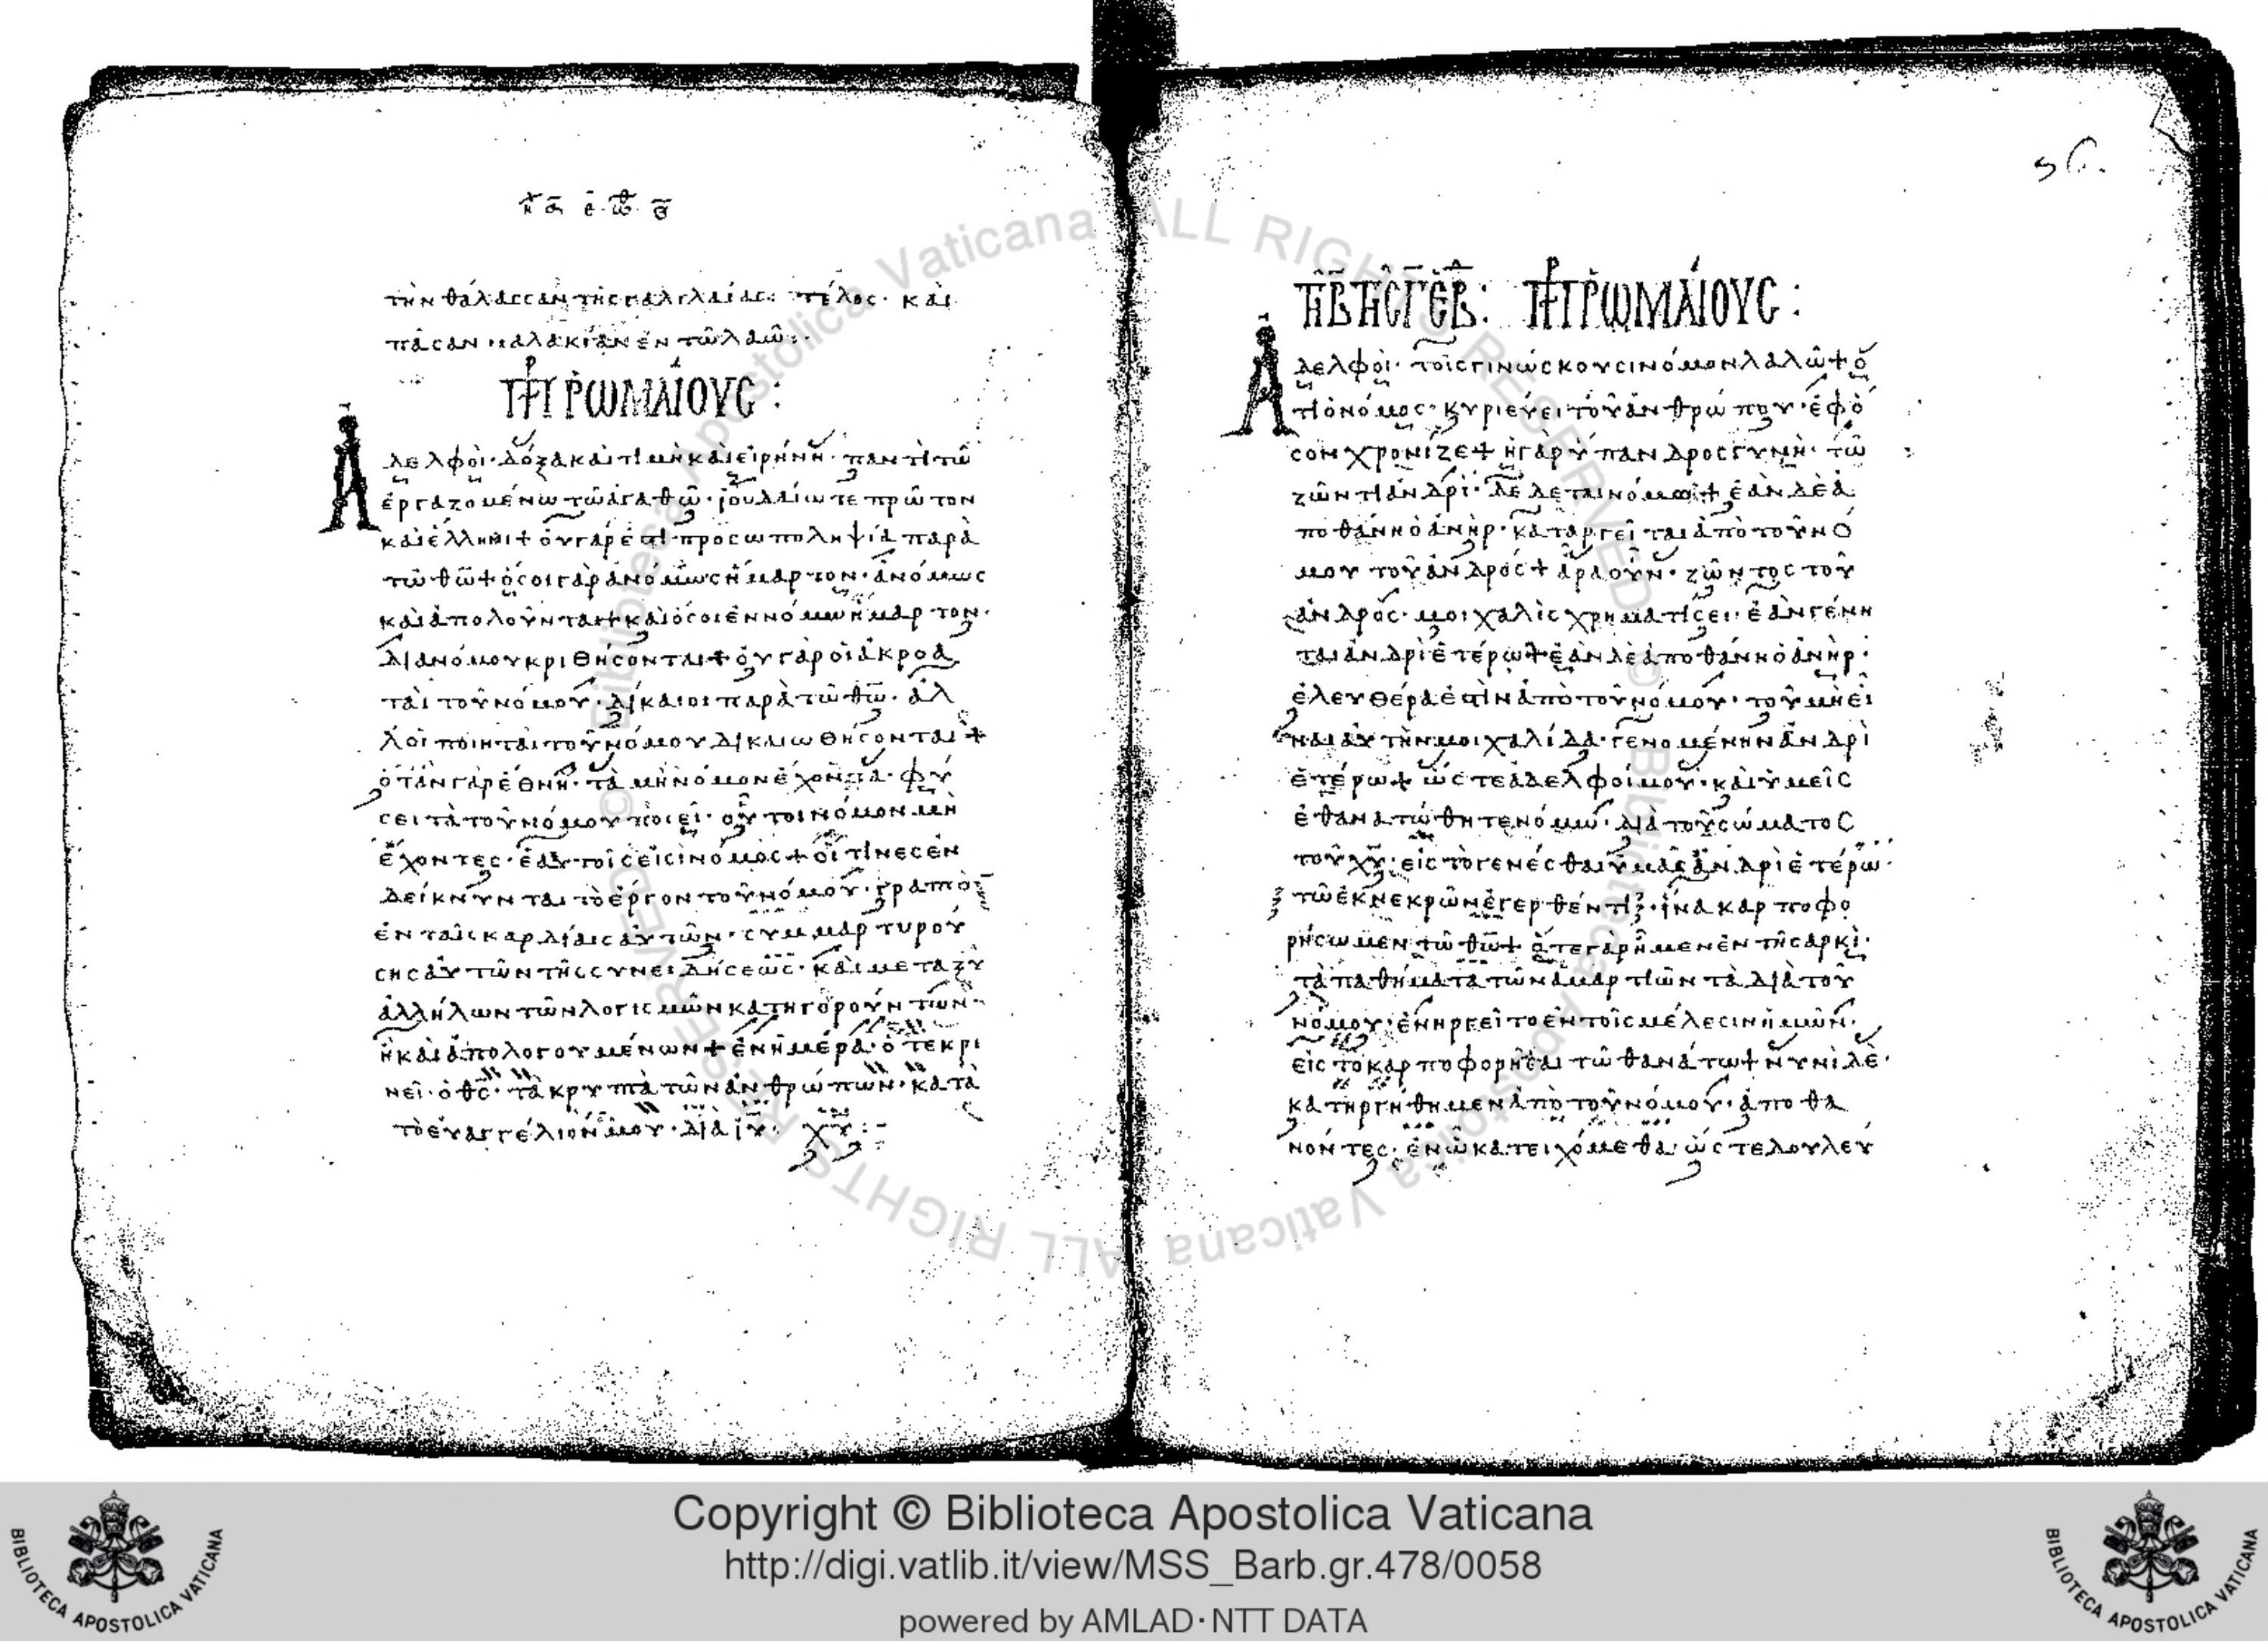 τὴν θάλασσαν τῆς γαλιλαίας: τέλος· καὶ
πᾶσαν μαλακίαν ἐν τῶ λαῶ:·
ΡΩΜΑΙΟΥC:
Ἀδελφοὶ· δόξα καὶ τιμὴ καὶ εἰρήνη· παντὶ τῶ
ἐργαζομένω τῶ ἀγαθῶ· ἰουδαίω τε πρῶτον
καὶ ἕλληνι + οὐ γάρ ἐστι προσωποληψία παρὰ
τῶ θῶ + ὅσοι γὰρ ἀνόμως ἥμαρτον· ἀνόμως
καὶ ἀπολοῦνται + καὶ ὅσοι ἐν νόμω ἥμαρτον·
διὰ νόμου κριθήσονται + οὐ γὰρ οἱ ἀκροα
ταὶ τοῦ νόμου· δίκαιοι παρὰ τῶ θῶ· ἀλ
λοι ποιηταὶ τοῦ νόμου δικαιωθήσονται +
ὅταν γὰρ ἔθνη· τὰ μὴ νόμον ἔχοντα· φύ
σει τὰ τοῦ νόμου ποιεῖ· οὗτοι νόμον μὴ
ἔχοντες· ἑαυτοῖς εἰσὶ νόμος + οἵτινες ἐν
δείκνυνται τὸ ἔργον τοῦ νόμου· γραπτὸν
ἐν ταῖς καρδίαις αὐτῶν· συμμαρτυρού
σης αὐτῶν τῆς συνειδήσεως· καὶ μεταξὺ
ἀλλήλων τῶν λογισμῶν κατηγορούντων·
ἢ καὶ ἀπολογουμένων + ἐν ἡμέρα· ὅτε κρι
νεῖ· ὁ θς· τὰ κρυπτὰ τῶν ἀνθρώπων· κατὰ
τὸ εὐαγγέλιόν μου· διὰ ἰυ· χυ:-
ΡΩΜΑΙΟΥC:
Ἀδελφοὶ· τοῖς γινώσκουσι νόμον λαλῶ + ὅ
τι ὁ νόμος· κυριεύει τοῦ ἀνθρώπου· ἐφ ὅ
σον χρόνον ζῆ + ἡ γὰρ ὕπανδρος γυνὴ· τῶ
ζῶντι ἀνδρὶ· δέδεται νόμω + ἐὰν δὲ ἀ
ποθάνη ὁ ἀνὴρ· κατάργεῖται ἀπὸ τοῦ νό
μου τοῦ ἀνδρός + ἄρα οὖν· ζῶντος τοῦ
ἀνδρός· μοιχαλὶς χρηματίσει· ἐὰν γένη
ται ἀνδρὶ ἑτέρω + ἐὰν δὲ ἀποθάνη ὁ ἀνὴρ·
ἐλευθέρα ἐστὶν ἀπὸ τοῦ νόμου· τοῦ μὴ εἶ
ναι αὐτὴν μοιχαλίδα· γενομένην ἀνδρὶ
ἑτέρω + ὥστε ἀδελφοί μου· καὶ ὑμεῖς
ἐθανατώθητε νόμω· διὰ τοῦ σώματος
τοῦ χυ· εἰς τὸ γενέσθαι ὑμᾶς ἀνδρὶ ἑτέρω·
τῶ ἐκ νεκρῶν ἐγερθέντι· ἵνα καρποφο
ρήσωμεν τῶ θῶ + ὅτε γὰρ ἦμεν ἐν τῆ σαρκὶ·
τὰ παθήματα τῶν ἁμαρτιῶν τὰ διὰ τοῦ
νόμου· ἐνηργεῖτο ἐν τοῖς μέλεσιν ἡμῶν·
εἰς τὸ καρποφορῆσαι τῶ θανάτω + νυνὶ δὲ·
κατηργήθημεν ἀπὸ τοῦ νόμου· ἀποθα
νόντες· ἐν ὧ κατειχόμεθα· ὥστε δουλεύ
Copyright © Biblioteca Apostolica Vaticana
http://digi.vatlib.it/view/MSS_Barb.gr.478/0058
powered by AMLAD·NTT DATA
BIBLIOTECA APOSTOLICA VATICANA
BIBLIOTECA APOSTOLICA VATICANA